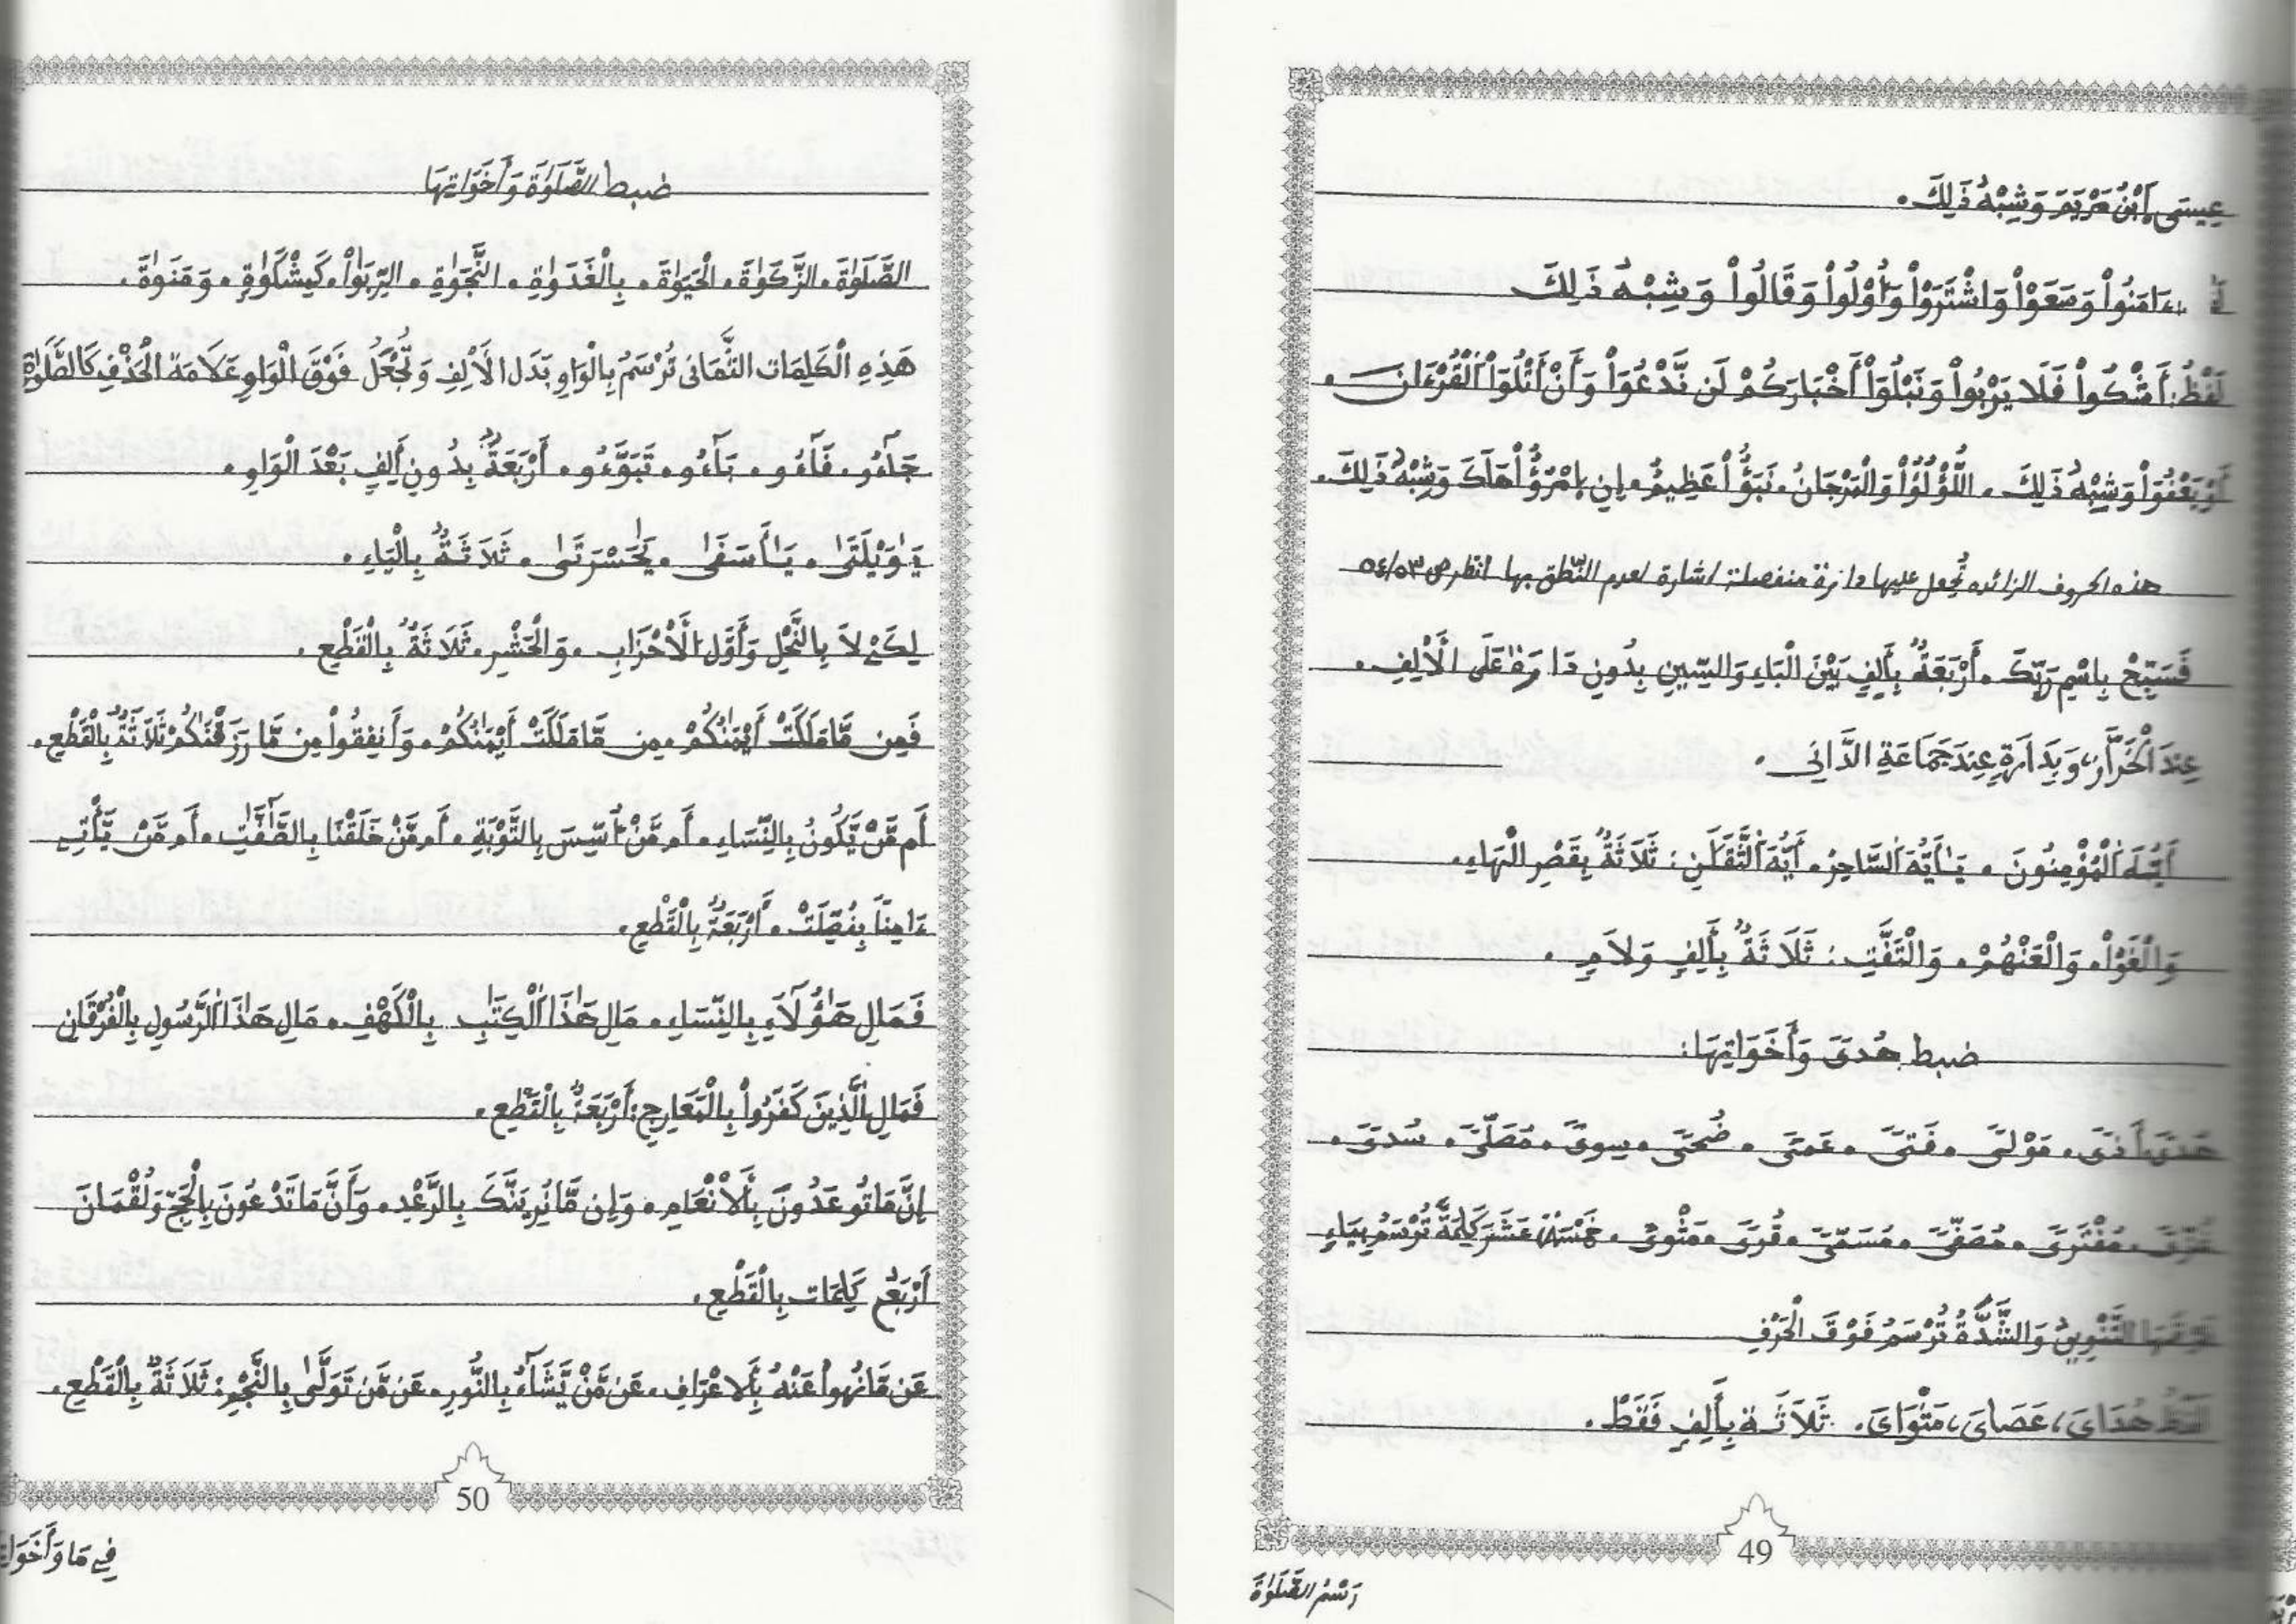 عِيسَى اَبْنُ مَرْيَمَ وَشِبْهُ ذَلِكَ.
ءَامَنُواْ وَسَعَوْاْ وَاشْتَرَوُاْ وَأُوْلُواْ وَقَالُواْ وَشِبْهُ ذَلِكَ
لَفْظُ: أَشْكُواْ فَلَا يَرْبُواْ وَنَبْلُوَاْ أَخْبَارَكُمْ لَن نَّدْعُوَاْ وَأَنْ أَتْلُوَاْ اَلْقُرْءَانَ.
أَوْ يَعْفُوَاْ وَشِبْهُ ذَلِكَ. اللُّؤْلُؤُاْ وَالْمَرْجَانُ. نَبَؤٌاْ عَظِيمٌ. إِنِ اِمْرُؤٌاْ هَلَكَ وَشِبْهُ ذَلِكَ.
هذه الحروف الزائده تُجعل عليها دائرة منفصلة اشارة لعدم النّطق بها انظر ص ٥٣/٥٤
فَسَبِّحْ بِاسْمِ رَبِّكَ. أَرْبَعَةٌ بِأَلِفٍ بَيْنَ الْبَاءِ وَالسِّينِ بِدُونِ دَارَةٍ عَلَى الْأَلِفِ.
عِندَ اَلْخَرَّازِ، وَبِدَارَةٍ عِندَ جَمَاعَةِ الدَّانِى.
أَيُّهَ اَلْمُؤْمِنُونَ. يَٰأَيُّهَ اَلسَّاحِرُ. أَيُّهَ اَلثَّقَلَٰنِ: ثَلَاثَةٌ بِقَصْرِ الْهَاءِ.
وَالْغَوْاْ. وَالْعَنْهُمْ. وَالْتَفَّتِ: ثَلَاثَةٌ بِأَلِفٍ وَلَامٍ.
ضبط هُدىً وَأَخَوَاتِهَا:
هُدىً. أَذىً. مَوْلىً. فَتىً. عَمىً. ضُحىً. سِوىً. مُصَلّىً. سُدىً.
غُزّىً. مُفْتَرىً. مُصَفّىً. مُسَمّىً. قُرىً. مَثْوىً. خَمْسَةَ عَشَرَ كَلِمَةً تُرْسَمُ بِيَاءٍ
فَوْقَهَا التَّنْوِينُ وَالشَّدَّةُ تُرْسَمُ فَوْقَ الْحَرْفِ
لَفْظُ هُدَاىَ، عَصَاىَ، مَثْوَاىَ. ثَلَاثَة بِأَلِفٍ فَقَطْ.
49
رَسْمُ الصَّلَوٰةَ
ضبط الصَّلَوٰةَ وَأَخَوَاتِهَا
الصَّلَوٰةَ. الزَّكَوٰةَ. الْحَيَوٰةَ. بِالْغَدَوٰةِ. النَّجَوٰةِ. الرِّبَوٰاْ. كَمِشْكَوٰةٍ. وَمَنَوٰةَ.
هَذِهِ الْكَلِمَات الثَّمَانى تُرْسَمُ بِالْوَاوِ بَدَل الْأَلِفِ وَتُجْعَلُ فَوْقَ الْوَاوِ عَلَامَة الْحَذْفِ كَالصَّلَوٰة
جَآءُو. فَآءُو. بَآءُو. تَبَوَّءُو. أَرْبَعَةٌ بِدُونِ أَلِفٍ بَعْدَ الْوَاوِ.
يَٰوَيْلَتَىٰ. يَٰأَسَفَىٰ. يَٰحَسْرَتَىٰ. ثَلَاثَةٌ بِالْيَاءِ.
لِكَىْ لَا بِالنَّحْلِ وَأَوَّل اَلْأَحْزَابِ. وَالْحَشْرِ. ثَلَاثَةٌ بِالْقَطْعِ.
فَمِن مَّا مَلَكَتْ أَيْمَٰنُكُم. مِن مَّا مَلَكَتْ أَيْمَٰنُكُمْ. وَأَنفِقُواْ مِن مَّا رَزَقْنَٰكُم ثَلَاثَةٌ بِالْقَطْعِ.
أَم مَّنْ يَّكُونُ بِالنِّسَاءِ. أَم مَّنْ أُسِّسَ بِالتَّوْبَةِ. أَم مَّنْ خَلَقْنَا بِالصَّٰٓفَّٰتِ. أَم مَّنْ يَّأْتِى
ءَامِناً بِفُصِّلَتْ. أَرْبَعَةٌ بِالْقَطْعِ.
فَمَالِ هَٰؤُلَآءِ بِالنِّسَاءِ. مَالِ هَٰذَا اَلْكِتَٰبِ بِالْكَهْفِ. مَالِ هَٰذَا اَلرَّسُولِ بِالْفُرْقَانِ
فَمَالِ اِلَّذِينَ كَفَرُواْ بِالْمَعَارِجِ: أَرْبَعَةٌ بِالْقَطْعِ.
إِنَّ مَا تُوعَدُونَ بِالْأَنْعَامِ. وَإِن مَّا نُرِيَنَّكَ بِالرَّعْدِ. وَأَنَّ مَا تَدْعُونَ بِالْحَجِّ وَلُقْمَانَ
أَرْبَعُ كَلِمَات بِالْقَطْعِ.
عَن مَّا نُهُواْ عَنْهُ بِالَاعْرَافِ. عَن مَّنْ يَّشَآءُ بِالنُّورِ. عَن مَّن تَوَلَّىٰ بِالنَّجْمِ: ثَلَاثَةٌ بِالْقَطْعِ.
50
فِى مَا وَأَخَوَا